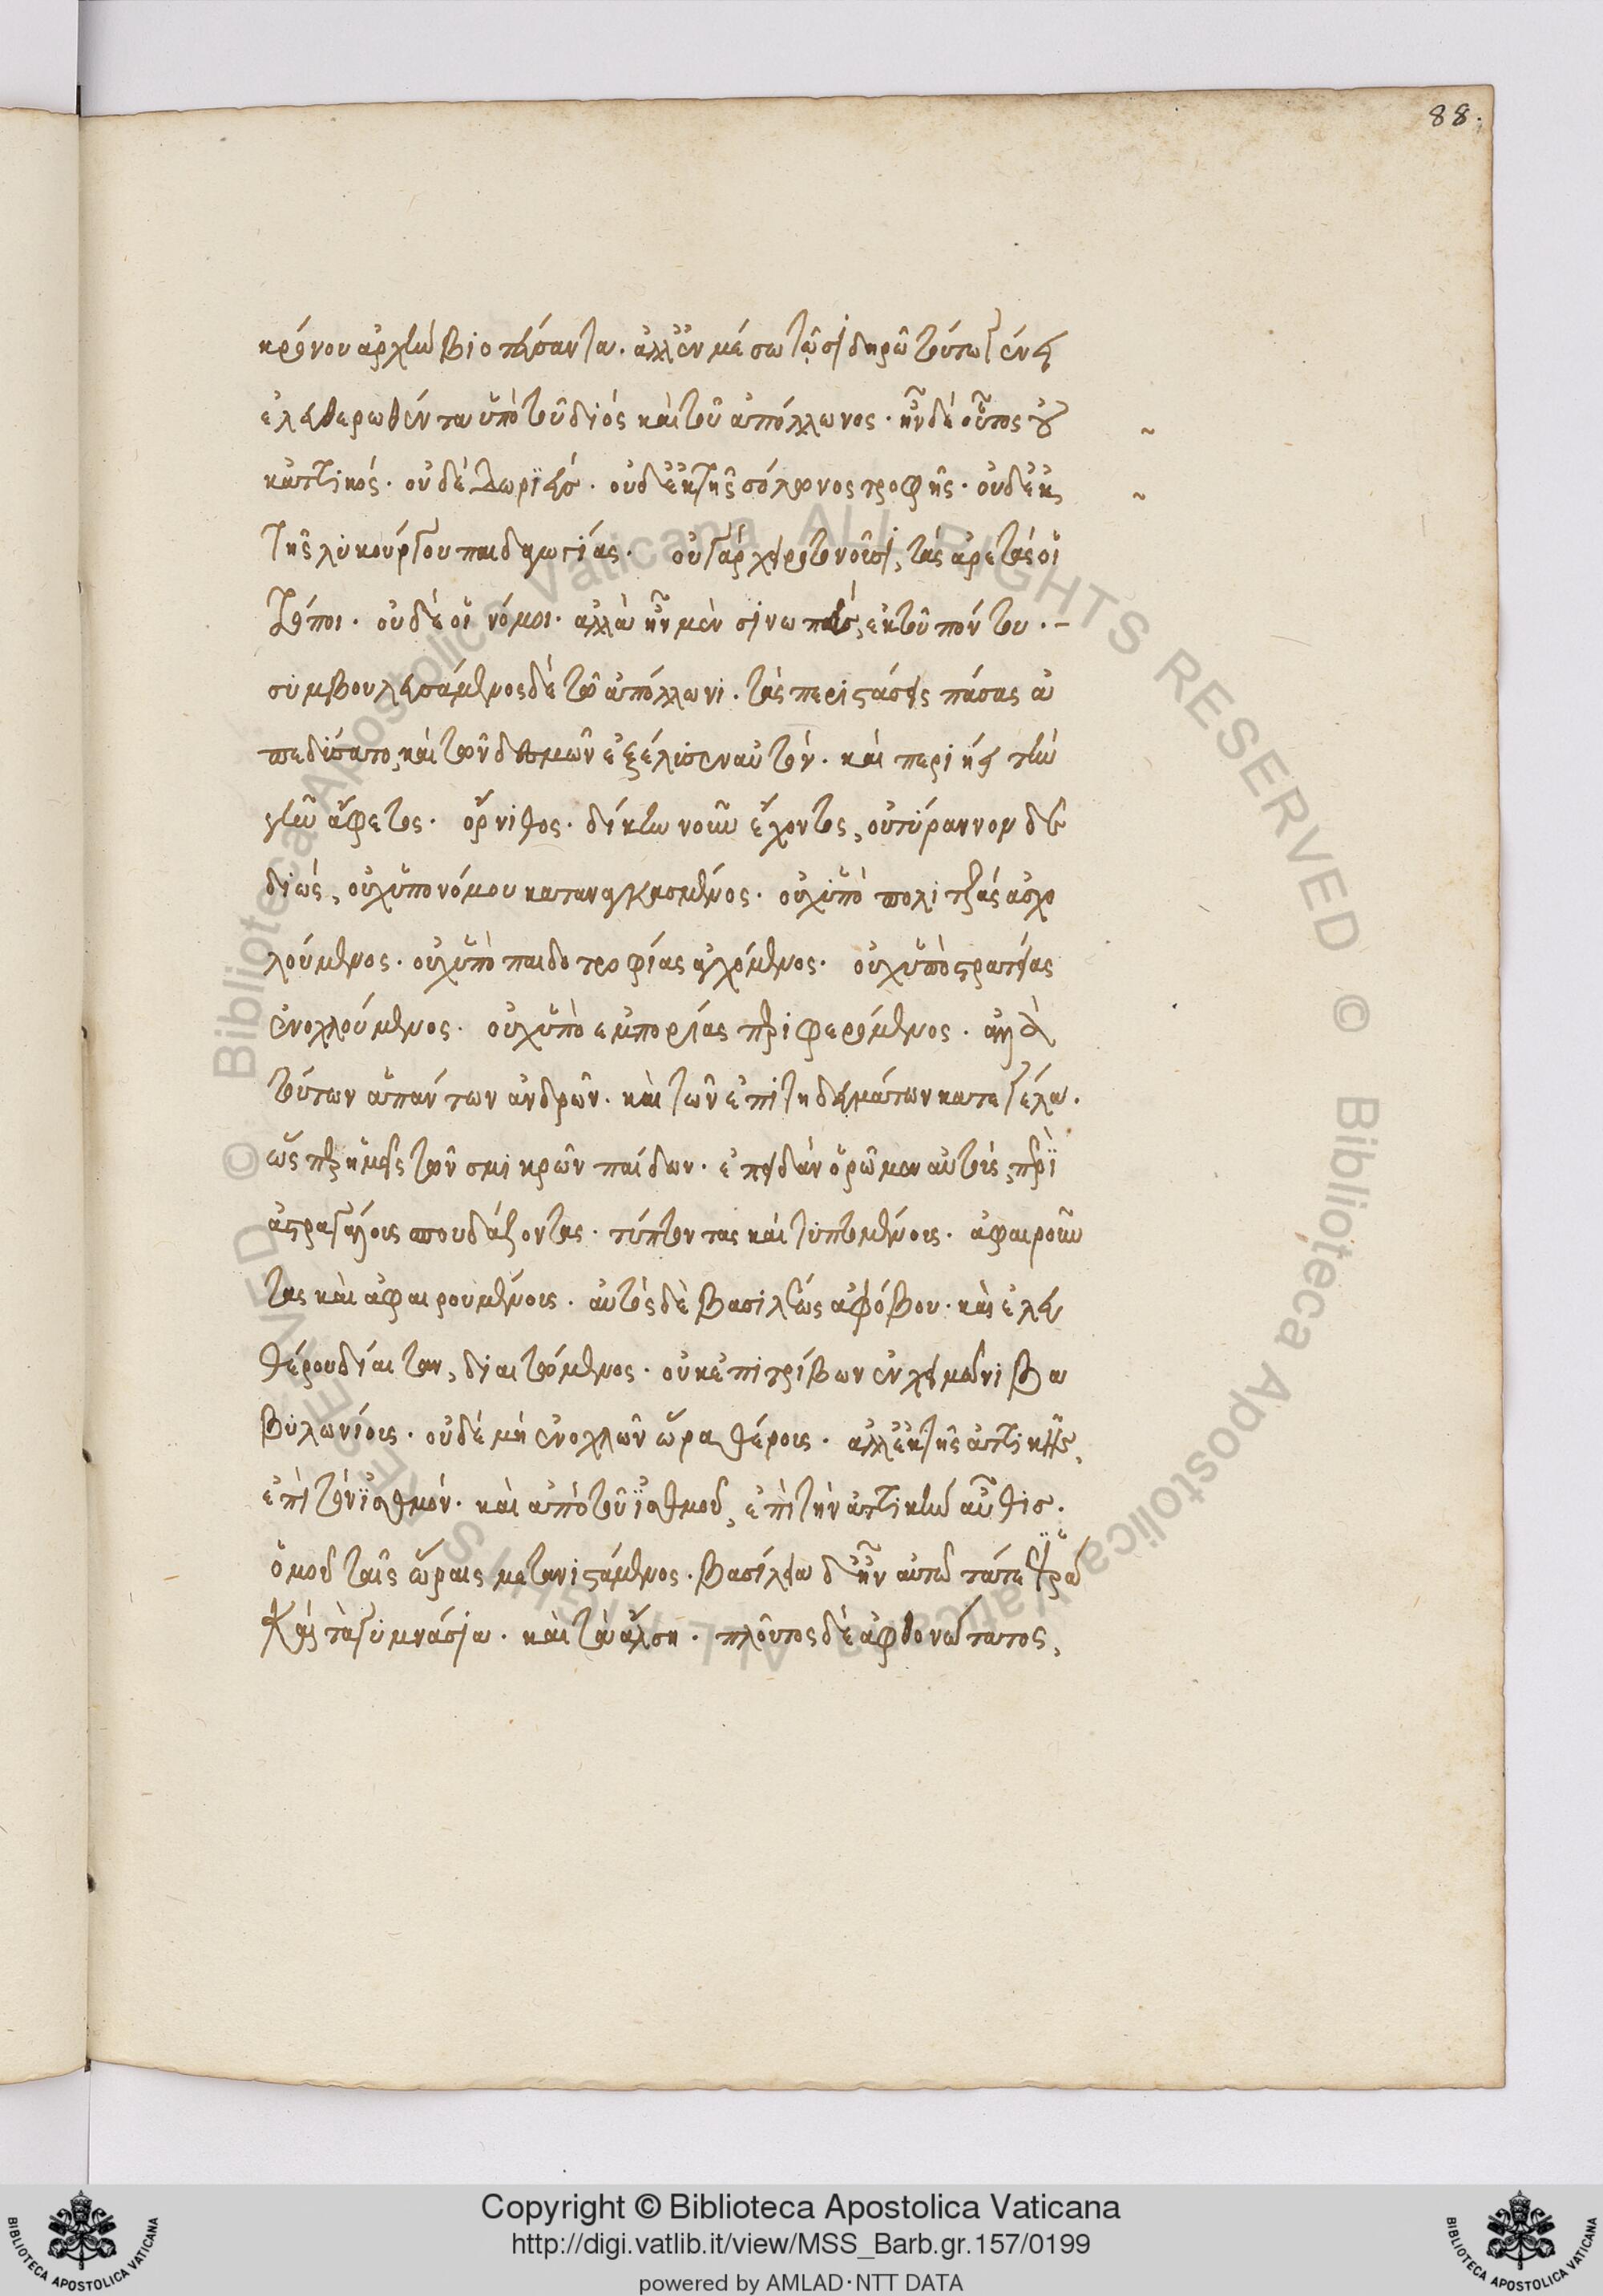 88.
κρόνου ἀρχὴν βιοτεύσαντα. ἀλλ' ἐν μέσω τῶ σιδηρῶ τούτω γένει
ἐλευθερωθέντα ὑπὸ τοῦ διός καὶ τοῦ ἀπόλλωνος. ἦν δὲ οὗτος οὐ
κ ἀττικός. οὐδὲ Δωριεύς. οὐδ' ἐκ τῆς σόλωνος τροφῆς. οὐδ' ἐκ
τῆς λυκούργου παιδαγωγίας. οὐ γάρ χειροτονοῦσι, τὰς ἀρετὰς οἱ
τόποι. οὐδὲ οἱ νόμοι. ἀλλὰ ἦν μὲν σινωπεύς, ἐκ τοῦ πόντου. –
συμβουλευσάμενος δὲ τῶ ἀπόλλωνι. τὰς περιστάσεις πάσας ἀ
πεδύσατο, καὶ τῶν δεσμῶν ἐξέλυσεν αὐτόν. καὶ περιήει τὴν
γῆν ἄφετος. ὄρνιθος. δίκην νοῦν ἔχοντος, οὐ τύραννον δε
διώς, οὐχ ὑπὸ νόμου κατηναγκασμένος. οὐχ ὑπὸ πολιτείας ἀσχο
λούμενος. οὐχ ὑπὸ παιδοτροφίας ἀγχόμενος. οὐχ ὑπὸ στρατείας
ἐνοχλούμενος. οὐχ ὑπὸ ἐμπορίας περιφερόμενος. ἀλλὰ
τούτων ἁπάντων ἀνδρῶν. καὶ τῶν ἐπιτηδευμάτων κατεγέλα.
ὥσπερ ἡμεῖς τῶν σμικρῶν παίδων. ἐπειδὰν ὁρῶμεν αὐτούς, περὶ
ἀστραγάλους σπουδάζοντας. τύπτοντας καὶ τυπτομένους. ἀφαιροῦν
τας καὶ ἀφαιρουμένους. αὐτὸς δὲ βασιλέως ἀφόβου. καὶ ἐλευ
θέρου δίαιταν, διαιτώμενος. οὐκ ἐπιτρίβων ἐν χειμῶνι βα
βυλωνίοις. οὐδὲ μή ἐνοχλῶν ὥρα θέρους. ἀλλ' ἐκ τῆς ἀττικῆς,
ἐπὶ τὸν ἰσθμόν. καὶ ἀπὸ τοῦ ἰσθμοῦ, ἐπὶ τὴν ἀττικὴν αὖθις.
ὁμοῦ ταῖς ὥραις μετανιστάμενος. βασίλεια δ' ἦν αὐτῶ τά τε ἱερὰ
καὶ τὰ γυμνάσια. καὶ τὰ ἄλση. πλοῦτος δὲ ἀφθονώτατος,
Copyright © Biblioteca Apostolica Vaticana
http://digi.vatlib.it/view/MSS_Barb.gr.157/0199
powered by AMLAD·NTT DATA